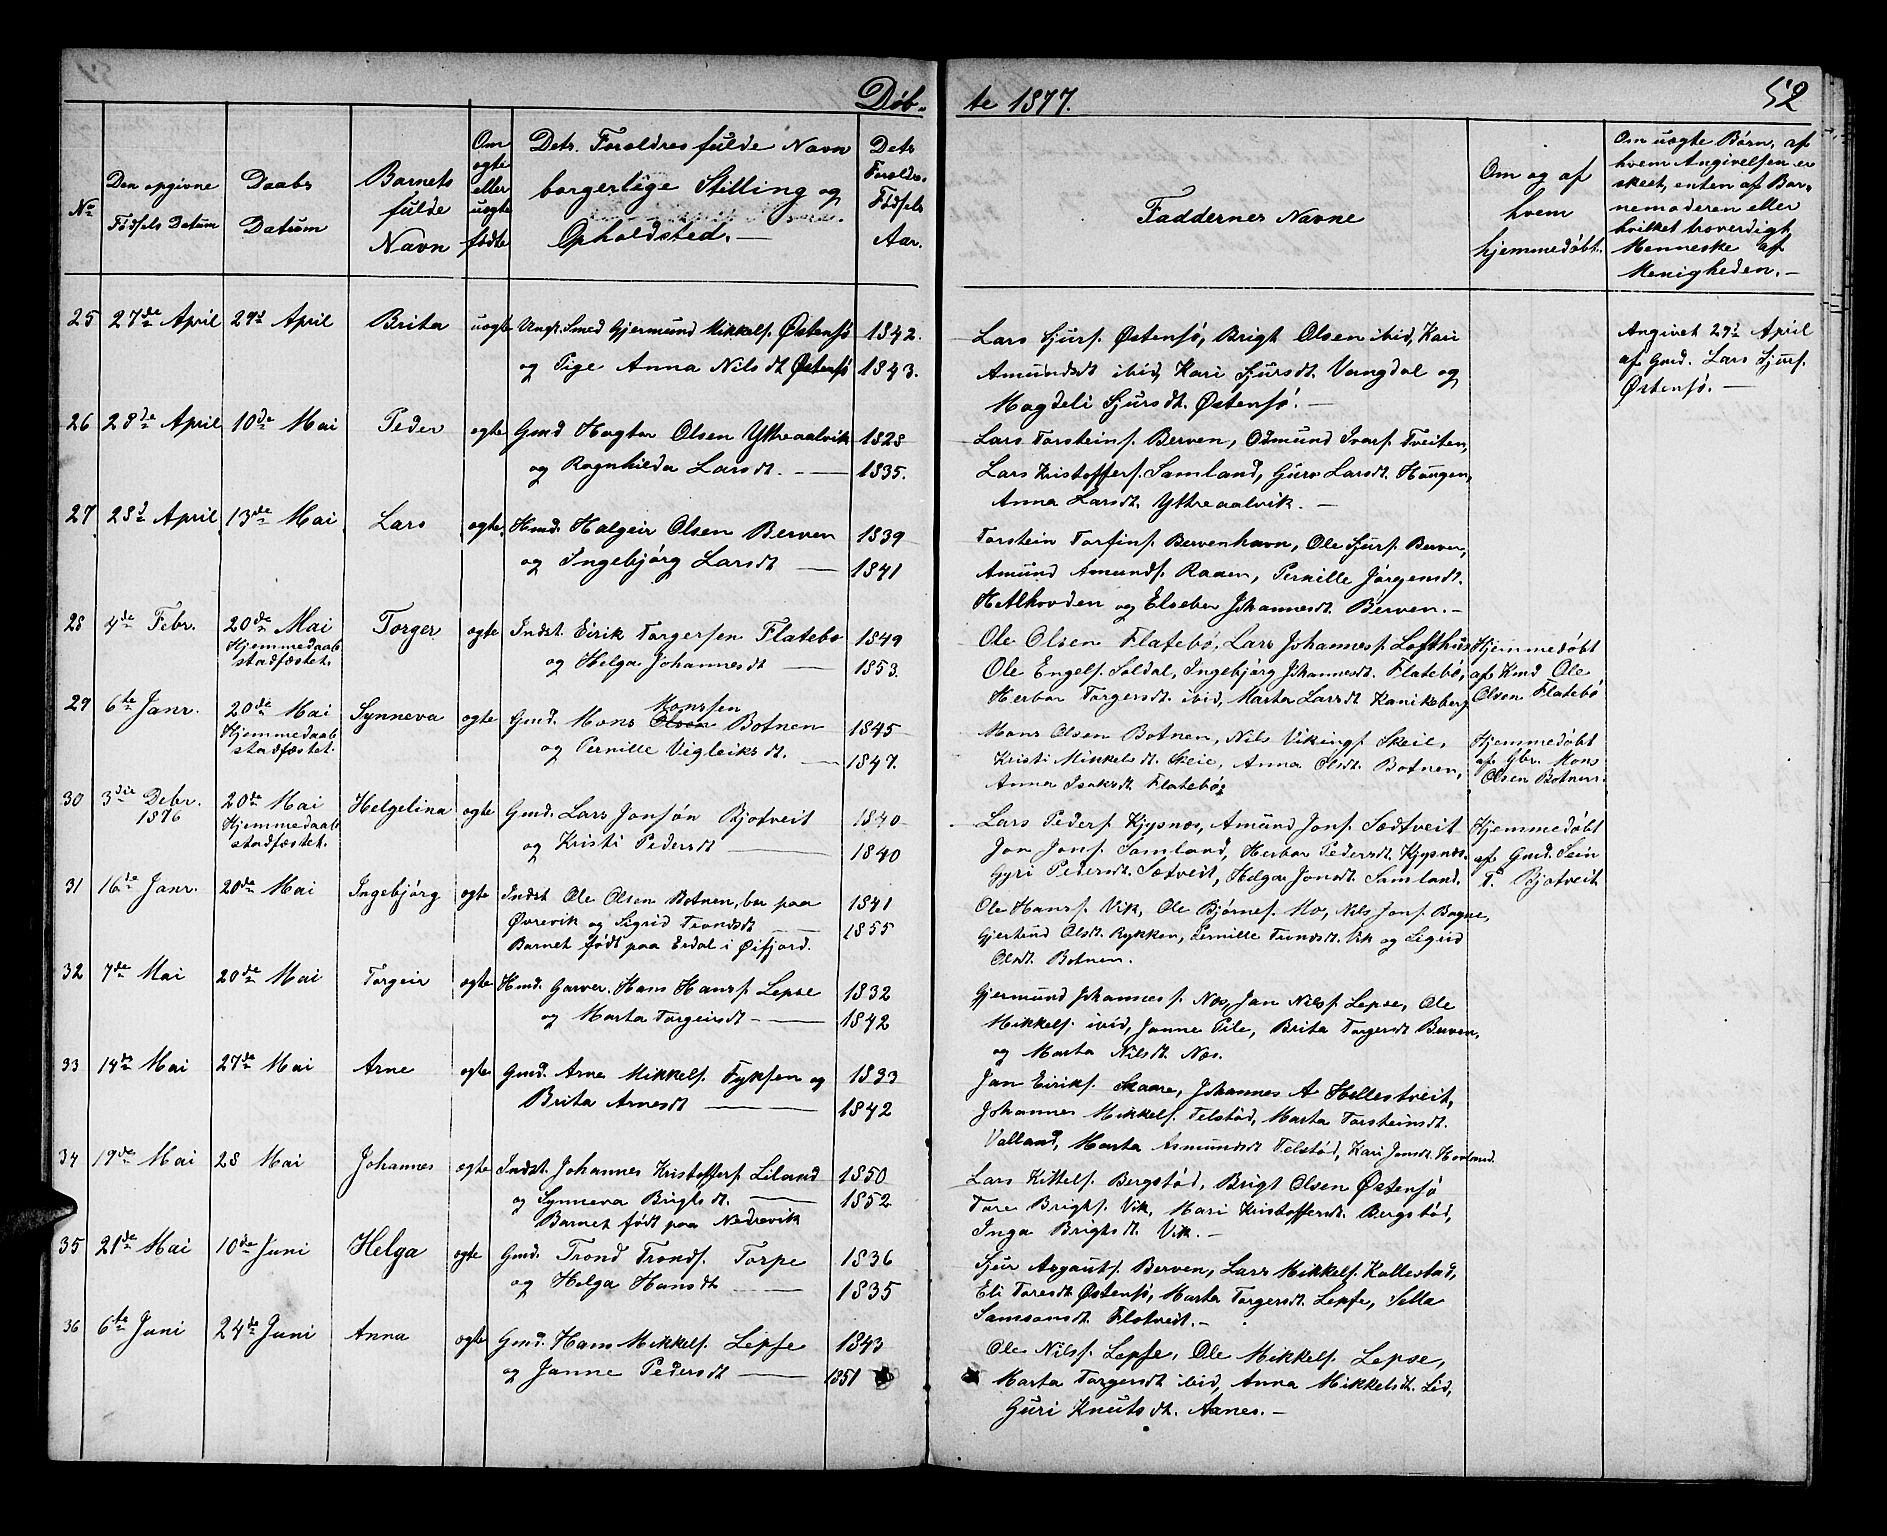 Døb-
te 1877.
52
No
Den opgivne
Fødsels Datum
Daabs
Datum
Barnets
fulde
Navn
Om
ægte
eller
uægte
fødte
Dets Forældres fulde Navn
borgerlige Stilling og
Opholdsted. —
Dets
Forældres
Fødsels
Aar.
Faddernes Navne
Om og af
hvem
hjemmedøbt.
Om uægte Børn, af
hvem Angivelsen er
skeet, enten af Bar-
nemoderen eller
hvilket troverdigt
Menneske af
Menigheden. —
25 27de April 29d April Brita uægte Ungk. Smed Gjermund Mikkels. Østensø 1842.
og Pige Anna Nilsdt Østensø 1843.
Lars Sjurs. Østensø, Brigt Olsen ibid, Kari
Amundsdt ibid, Kari Sjursdt. Vangdal og
Magdeli Sjursdt. Østensø. —
Angivet 29d April
af Gmd. Lars Sjurs.
Østensø. —
26 28de April 10de Mai Peder ægte Gmd Hagtor Olsen Yttreaalvik 1828
og Ragnhilda Larsdt. — 1835.
Lars Torsteins. Berven, Odmund Ivars. Tveiten,
Lars Kristoffers. Samland, Guro Larsdt. Haugen,
Anna Larsdt. Yttreaalvik. —
27 28d April 13de Mai Lars ægte Hmd. Halgeir Olsen Berven 1839
og Ingebjórg Larsdt — 1841
Torstein Torfins. Bervenhavn, Ole Sjurs. Berven,
Amund Amunds. Raaen, Pernille Jørgensdt.
Hetlhovden og Elseber Johannesdt. Berven. —
28 4de Febr. 20de Mai Torger ægte Indst. Eirik Torgersen Flatebø 1849
Hjemmedaab
stadfæstet.
og Helga Johannesdt — 1853.
Ole Olsen Flatebø, Lars Johannes. Lofthus
Ole Engels. Soldal, Ingebjórg Johannesdt. Flatebø,
Herbor Torgersdt. ibid, Marta Larsdt Kanikeberg
Hjemmedøbt
af Kmd Ole
Olsen Flatebø
29 6te Janr. 20de Mai Synneva ægte Gmd. Mons Olsen Monssen Botnen 1845
Hjemmedaab
stadfæstet.
og Pernille Vigleiksdt. — 1847.
Mons Olsen Botnen, Nils Vikings. Skeie,
Kristi Mikkelsdt. Skeie, Anna Olsdt. Botnen,
Anna Isaksdt. Flatebø
Hjemmedøbt
af Gbr. Mons
Olsen Botnen.
30 3die Debr. 1876 20de Mai Helgelina ægte Gmd. Lars Jonsøn Bjotveit 1840
Hjemmedaab
stadfæstet.
og Kristi Pedersdt — 1840
Lars Peders. Kjysnæs, Amund Jons. Sædtveit
Jon Jons. Samland, Herbor Pedersdt. Kjysnæs.
Gyri Pedersdt. Sætveit, Helga Jonsdt. Samland.
Hjemmedøbt
af Gmd. Sein
T. Bjotveit
31 16de Janr. 20de Mai Ingebjórg ægte Indst Ole Olsen Botnen, bor paa 1841
Øvrevik og Sigrid Trondsdt — 1855
Barnet født paa Erdal i Øifjord.
Ole Hans. Vik, Ole Bjørnes. Mo, Nils Jons. Bagne,
Gjertrud Olsdt. Rykken, Pernille Trondsdt. Vik og Sigrid
Olsdt. Botnen.
32 7de Mai 20de Mai Torgeir ægte Hmd. Garver. Hans Hans. Lepse 1832
og Marta Torgeirsdt — 1842
Gjermund Johannes. Næs, Jan Nils. Lepse, Ole
Mikkels. ibid, Janne Pile, Brita Torgersdt Berven,
og Marta Nilsdt. Næs.
33 14de Mai 27de Mai Arne ægte Gmd. Arne Mikkels. Fyksen og 1833
Brita Arnesdt — 1842
Jan Eiriks. Skaare, Johannes A Hellestveit,
Johannes Mikkels. Telstød, Marta Torsteinsdt.
Valland, Marta Asmundsdt Telstød, Kari Jonsdt. Hovland.
34 19de Mai 28 Mai Johannes ægte Indst. Johannes Kristoffers. Liland 1850
og Synneva Brigtsdt. — 1852
Barnet født paa Nedrevik
Lars Kittels. Bergstød, Brigt Olsen Østensø
Tore Brigts. Vik, Mari Kristoffersdt. Bergstød,
Inga Brigtsdt. Vik. —
35 21de Mai 10de Juni Helga ægte Gmd. Trond Tronds. Torpe 1836
og Helga Hansdt — 1835
Sjur Asgauts. Berven, Lars Mikkels. Kallestad,
Eli Toresdt Østensø, Marta Torgersdt. Lepse, Sella
Samsonsdt. Flotveit. —
36 6te Juni 24de Juni Anna ægte Gmd. Hans Mikkels. Lepse 1843
og Janne Pedersdt — 1851
Ole Nils. Lepse, Ole Mikkels. Lepse,
Marta Torgersdt ibid, Anna Mikkelsdt. Lid,
Guri Knutsdt. Aanes. —